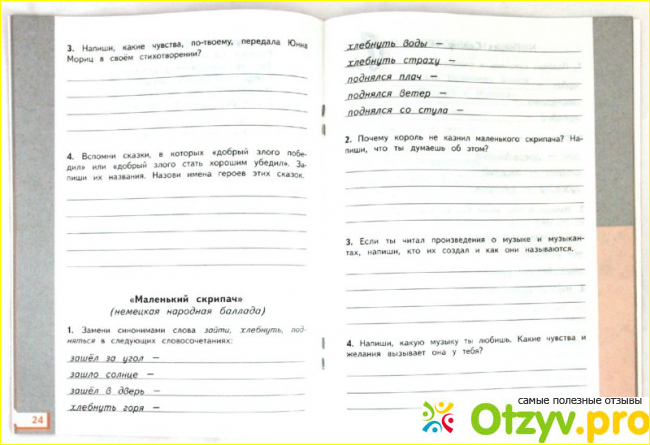 3. Напиши, какие чувства, по-твоему, передала Юнна
Мориц в своём стихотворении?
4. Вспомни сказки, в которых «добрый злого побе-
дил» или «добрый злого стать хорошим убедил». За-
пиши их названия. Назови имена героев этих сказок.
«Маленький скрипач»
(немецкая народная баллада)
1. Замени синонимами слова зайти, хлебнуть, под-
няться в следующих словосочетаниях:
зашёл за угол —
зашло солнце —
зашёл в дверь —
хлебнуть горя —
24
хлебнуть воды —
хлебнуть страху —
поднялся плач —
поднялся ветер —
поднялся со стула —
2. Почему король не казнил маленького скрипача? На-
пиши, что ты думаешь об этом?
3. Если ты читал произведения о музыке и музыкан-
тах, напиши, кто их создал и как они называются.
4. Напиши, какую музыку ты любишь. Какие чувства и
желания вызывает она у тебя?
самые полезные отзывы
Otzyv.pro